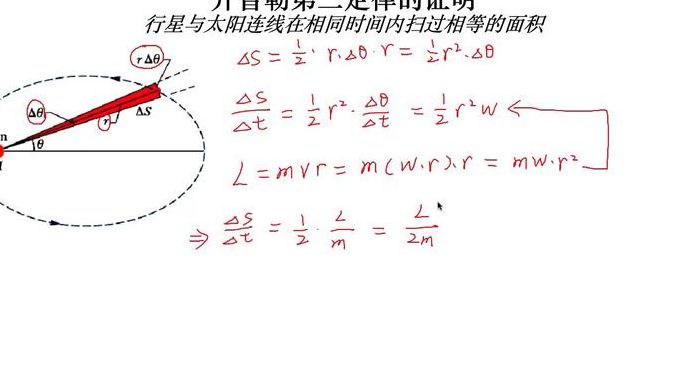 开普勒第二定律的证明
行星与太阳连线在相同时间内扫过相等的面积
rΔθ
ΔS = 1/2 · r·Δθ·r = 1/2 r²·Δθ
Δθ
ΔS
r
ΔS/Δt = 1/2 r²·Δθ/Δt = 1/2 r²w
θ
L = mvr = m(w·r)·r = mw·r²
⇒ ΔS/Δt = 1/2 · L/m = L/2m